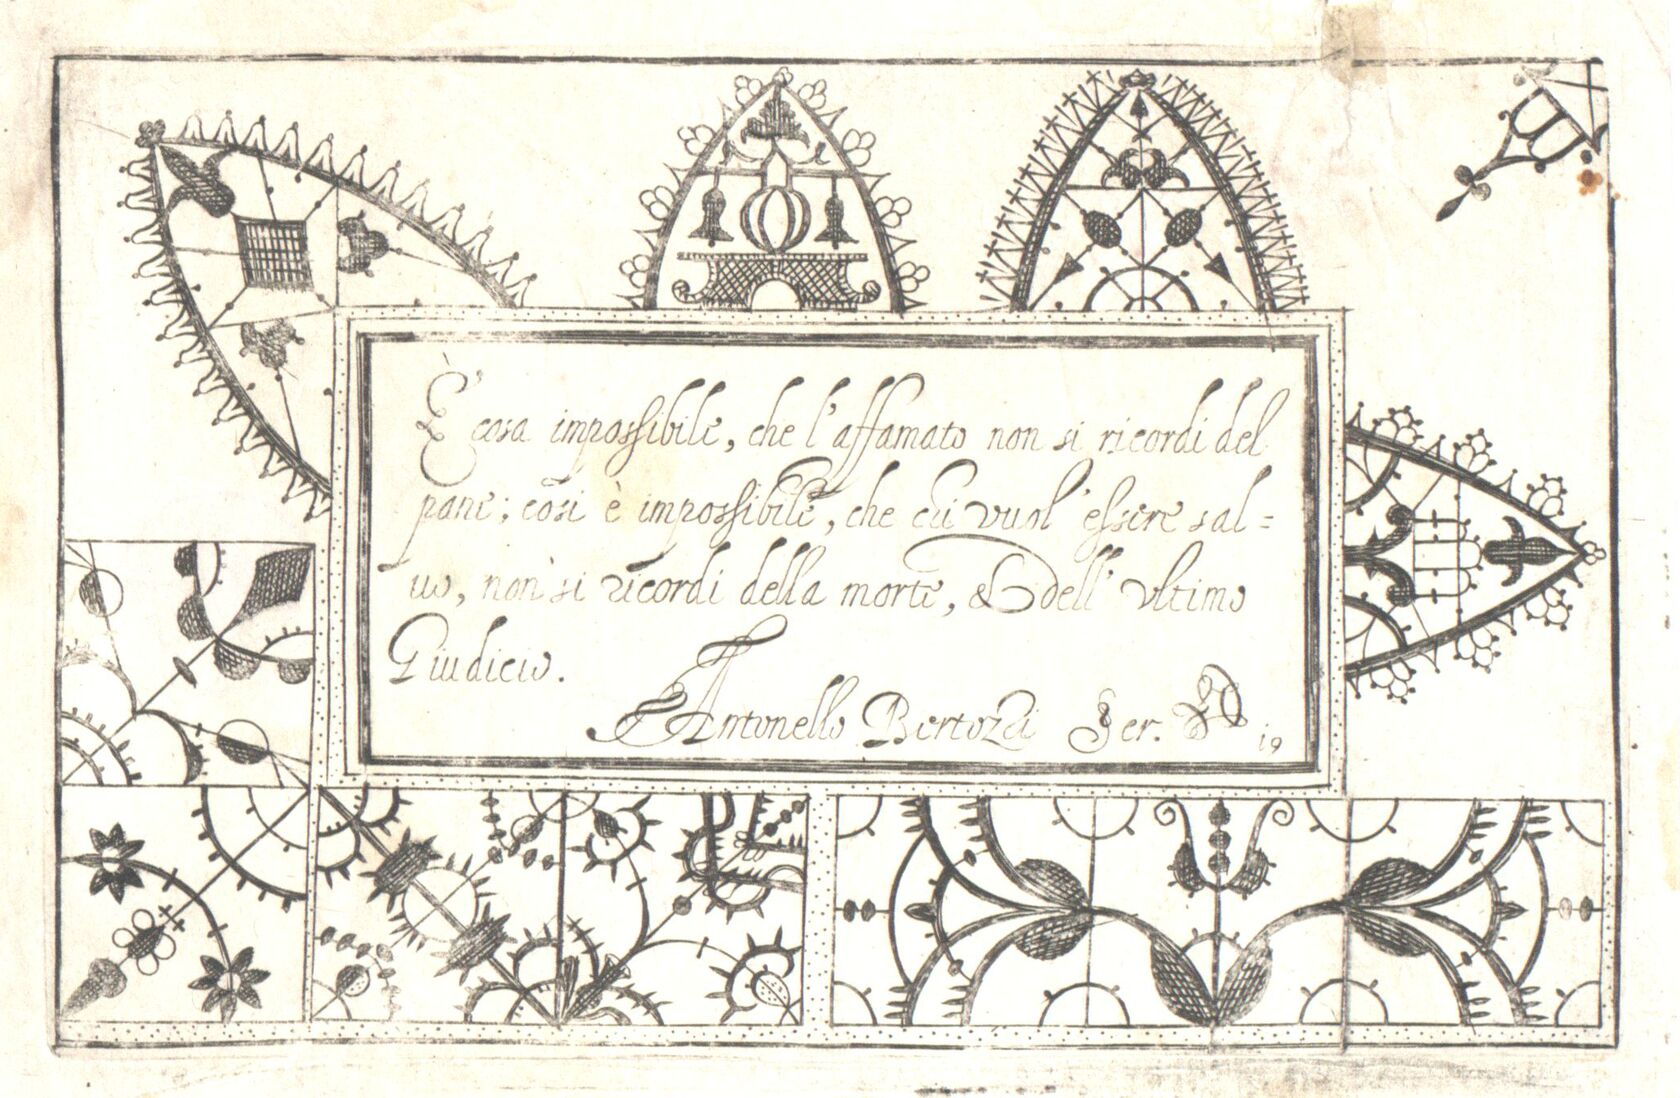 È cosa impossibile, che l'affamato non si ricordi del
pane; cosi è impossibile, che chi vuol' essere sal=
uo, non si ricordi della morte, & dell' vltimo
Giudicio.
Antonello Bertozzi Scr.
19